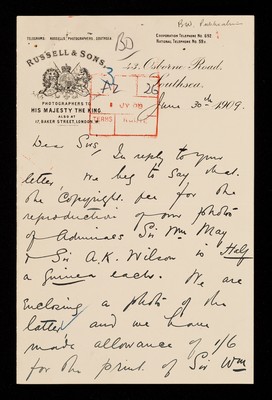 B.W. Publication
TELEGRAMS: RUSSELLS PHOTOGRAPHERS, SOUTHSEA
BD
CORPORATION TELEPHONE No. 692
NATIONAL TELEPHONE No. 58X
RUSSELL & SONS,
PHOTOGRAPHERS TO
HIS MAJESTY THE KING
ALSO AT
17, BAKER STREET, LONDON, W.
43, Osborne Road,
Southsea,
3
AZ
26
1 JY 09
TERMS
June 30th 1909.
Dear Sirs,
In reply to your
letter, we beg to say that
the Copyright fee for the
reproduction of our photos
of Admirals Sir Wm May
& Sir A.K. Wilson is Half
a Guinea each. We are
enclosing a photo of the
latter, and we have
made allowance of 1/6
for the print of Sir Wm